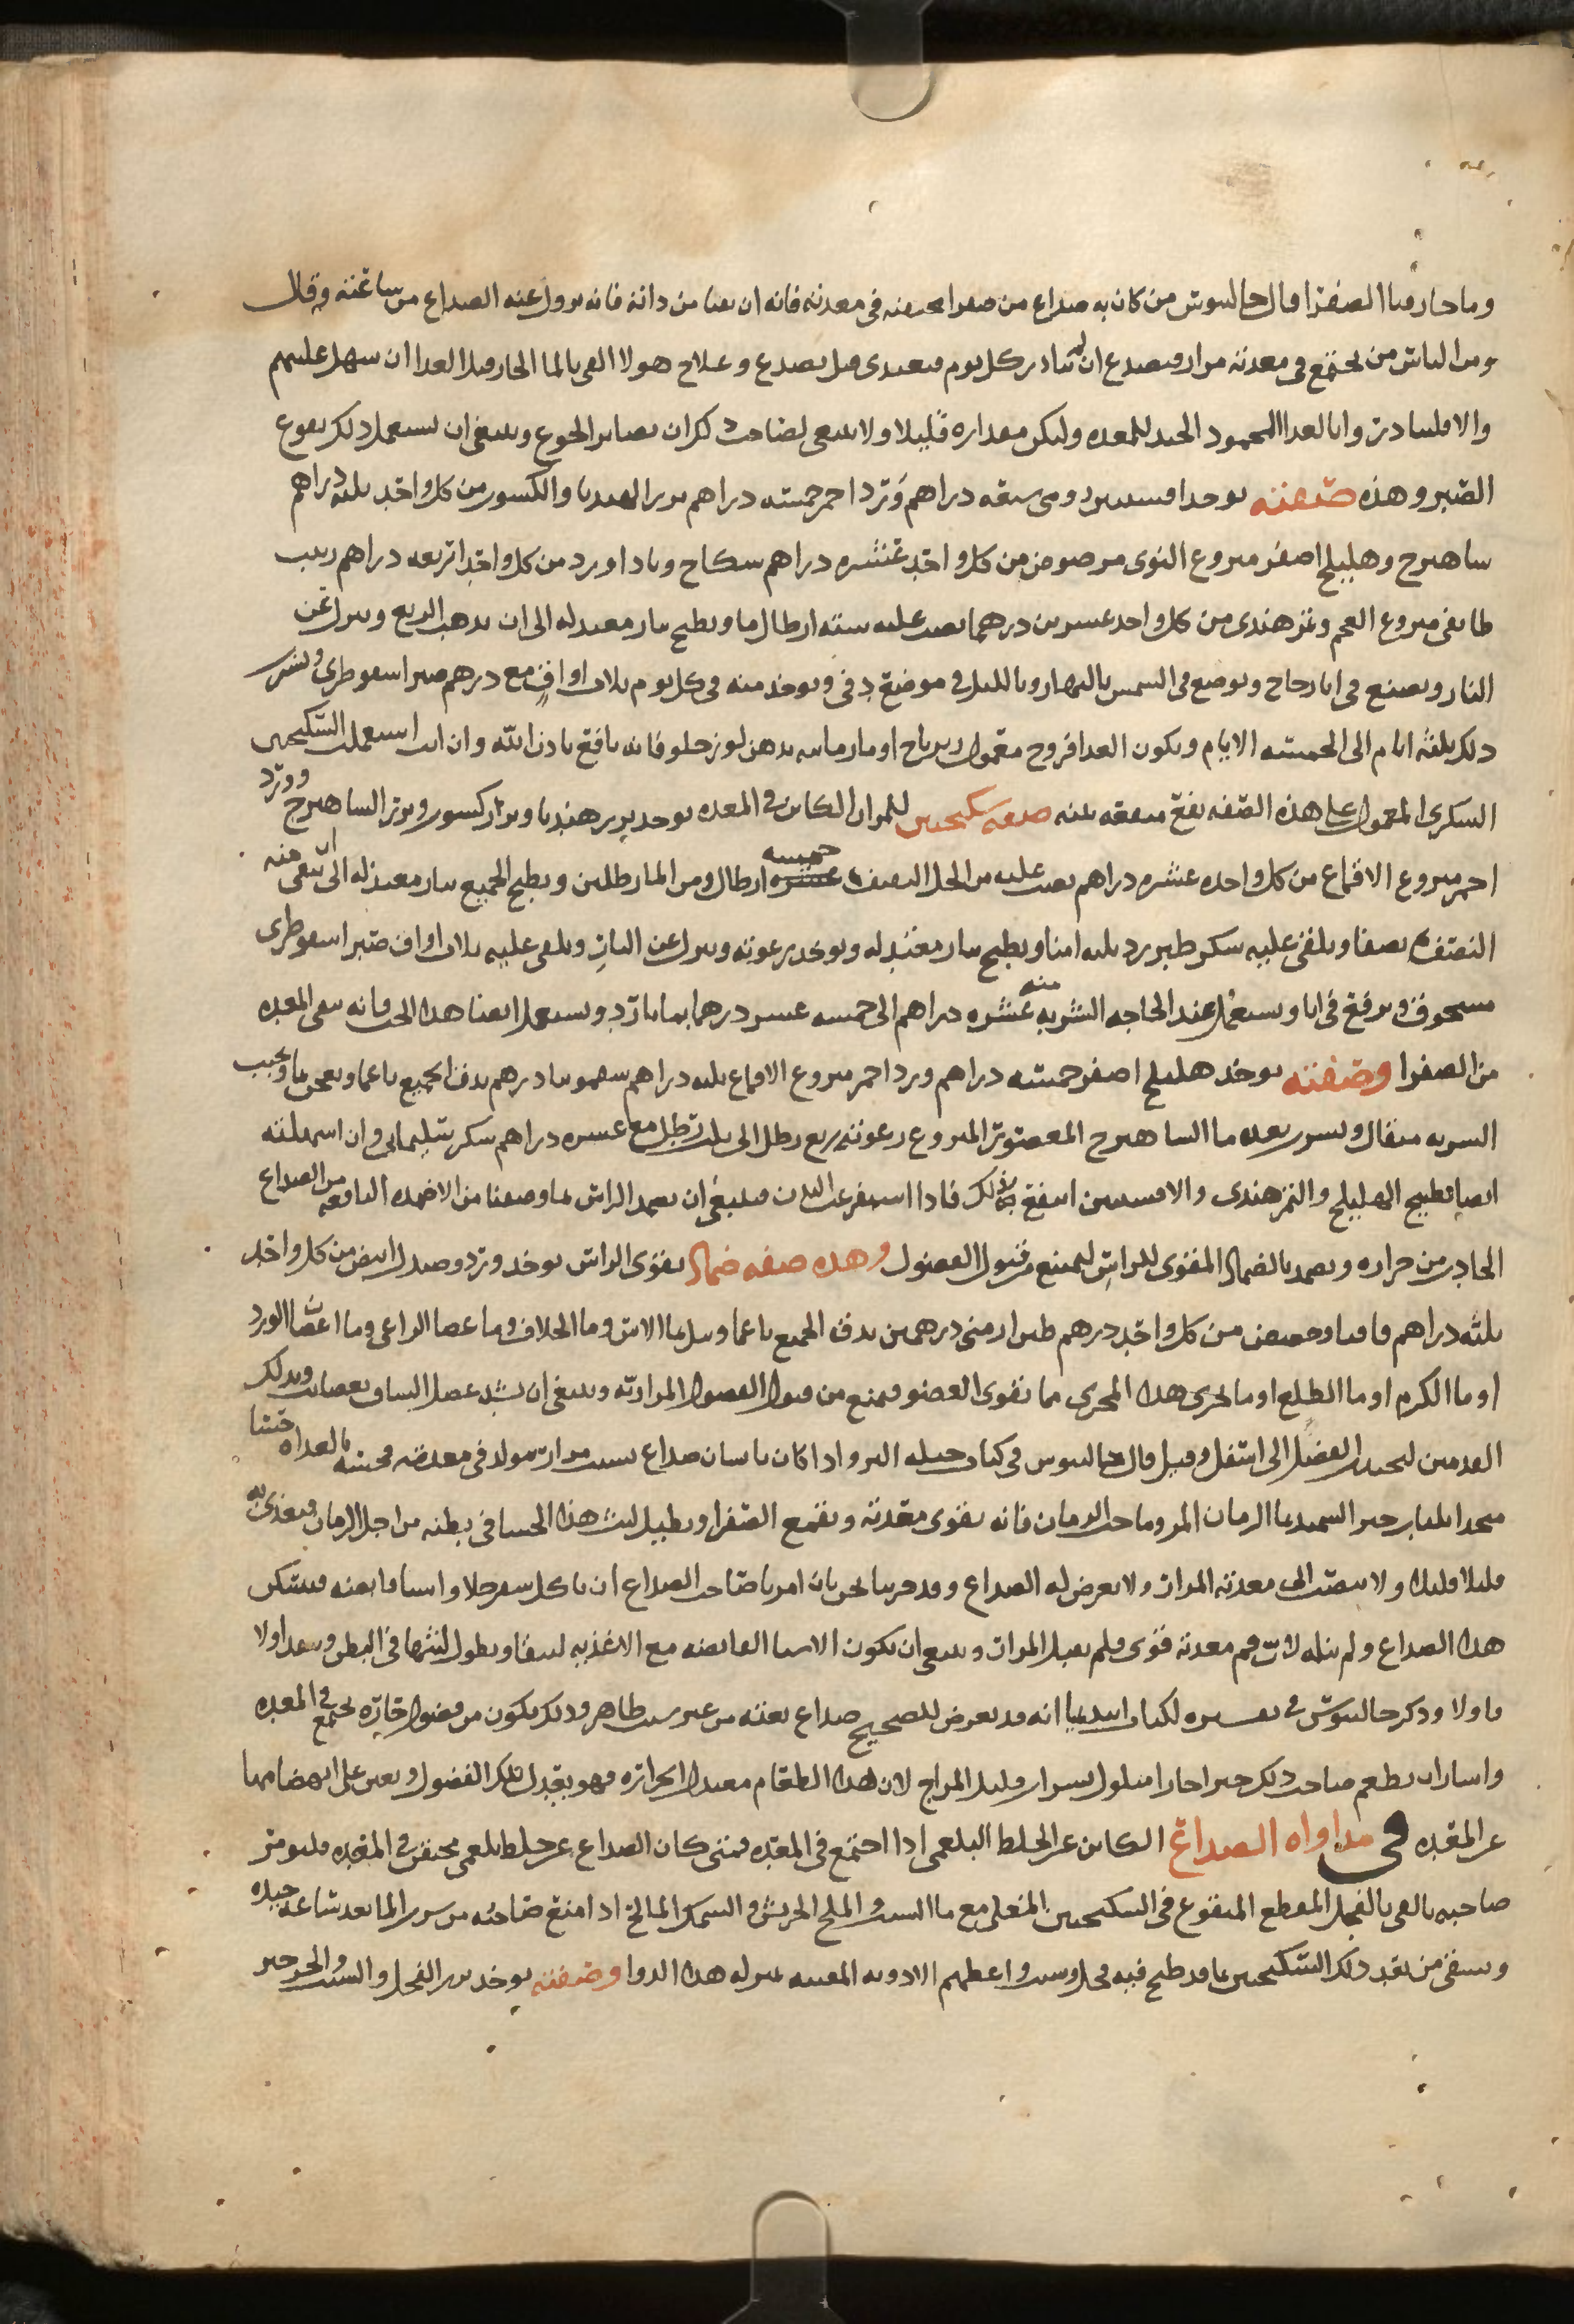 وما حار فيها الصفرا قال جالينوس من كان به صداع من صفرا محتقنه في معدته فانه ان تقيا من ذاته فانه يزول عنه الصداع من ساعته وقال
ومن الناس من يجتمع في معدته مرار فيصدع ان لم يبادر كل يوم فيغتدى قبل يصدع وعلاج هولا القي بالما الحار قبل الغدا ان سهل عليهم
والا فليبادروا بالغدا المحمود الجيد للمعده وليكن مقداره قليلا ولا ينبغي لصاحب ذلك ان يصابر الجوع وينبغي ان يستعمل ذلك نقوع
الصبر وهذه صفته يوخد افسنتين رومي سبعه دراهم ورد احمر خمسه دراهم بزر الهندبا والكسور من كل واحد ثلثه دراهم
ساهترج وهليلج اصفر منزوع النوى مرضوض من كل واحد عشره دراهم سكاع وباداورد من كل واحد اربعه دراهم زبيب
طايفي منزوع العجم وتمر هندي من كل واحد عشرين درهما يصب عليه سته ارطال ما ويطبخ بنار معتدله الى ان يذهب الربع وينزل عن
النار ويصنع في انا زجاج ويوضع في الشمس بالنهار وبالليل في موضع دفي ويوخذ منه في كل يوم ثلاث اواق مع درهم صبر اسقوطري ويشرب
ذلك ثلثه ايام الى الخمسه الايام ويكون الغدا فروج معمول زيرباج او مارمانيه بدهن لوز حلو فانه نافع باذن الله وان انت استعملت السكنجبين
السكري المعمول على هذه الصفه نفع منفعه بينه صفه سكنجبين للمرار الكاين في المعده يوخد بزر هندبا وبزر كسور وبزر الساهترج وورد
احمر منزوع الاقماع من كل واحده عشره دراهم يصب عليه من الخل الثقيف خمسه ارطال ومن الما رطلين ويطبخ الجميع بنار معتدله الى ان يبقى منه
النصف ثم يصفا ويلقى عليه سكر طبرزد ثلثه امنا ويطبخ بنار معتدله وتوخد رغوته وينزل عن النار ويلقى عليه ثلاث اواق صبر اسقوطري
مسحوق ويرفع في انا ويستعمل عند الحاجه الشربه منه عشره دراهم الى خمسه عشر درهما بما بارد ويستعمل ايضا هذا الحب فانه ينقي المعده
من الصفرا وصفته يوخد هليلج اصفر خمسه دراهم ورد احمر منزوع الاقماع ثلثه دراهم سقمونيا درهم يدق الجميع ناعما ويعجن بما ويحبب
الشربه مثقال ويشرب بعده ما الساهترج المعصور المنزوع رغوته ربع رطل الى ثلث رطل مع عشره دراهم سكر سليماني وان اسهلته
ايضا بطبيخ الهليلج والتمر هندي والافسنتين انتفع بذلك فاذا استفرغت البدن فينبغي ان تضمد الراس بما وصفنا من الاضمده النافعه من الصداع
الحادث من حراره ويضمد بالضماد المقوى للراس ليمنع من قبول الفضول وهذه صفه ضماد يقوي الراس يوخد ورد وصندل ابيض من كل واحد
ثلثه دراهم فاقيا وحضض من كل واحد درهم طين ارمني درهمين يدق الجميع ناعما ويبل بما الاس وما الخلاف وما عصا الراعي وما اغصان الورد
او ما الكرم او ما الطلع او ما يجري هذا المجرى مما يقوي العضو فيمنع من قبول الفضول المراريه وينبغي ان يشد عضل الساق بعصايب ويدلك
القدمين لينجذب الفضل الى اسفل وقيل قال جالينوس في كتاب حيله البرو اذا كان بانسان صداع بسبب مرار تتولد في معدته فحسه بالغداه حسا
متخذا بلباب خبز السميد بما الرمان المز وما حب الرمان فانه يقوي معدته ويقمع الصفرا ويطيل لبث هذا الحسا في بطنه من اجل الرمان فيغذي به
قليلا قليلا ولا ينصب الى معدته المرار ولا يعرض له الصداع وقد جربنا نحن بان امرنا صاحب الصداع ان ياكل سفرجلا واشيا قابضه فيسكن
هذا الصداع ولم ينله لان فم معدته قوي فلم يقبل المرار وينبغي ان تكون الاشيا القابضه مع الاغذيه لتبقا ويطول لبثها في البطن وينفد اولا
فاولا وذكر جالينوس في تفسيره لكتاب ابيديميا انه قد يعرض للصحيح صداع بغته من غير سبب ظاهر وذلك يكون من فضول حاره تجتمع في المعده
واشار ان يطعم صاحب ذلك خبزا حارا مبلول بشراب قليل المزاج لان هذا الطعام معتدل الحراره فهو يعدل تلك الفضول ويعين على انهضامها
عن المعده في مداواه الصداع الكاين عن الخلط البلغمي اذا اجتمع في المعده فمتى كان الصداع عن خلط بلغمي محتقن في المعده فليومر
صاحبه بالقي بالفجل المقطع المنقوع في السكنجبين المغلي مع ما الشبت والملح الجريش والسمك المالح اذا امتنع صاحبه من شرب الما بعد ساعه جيده
ويسقى من بعد ذلك السكنجبين بما قد طبخ فيه فجل وشبت واعطهم الادويه المقييه بمنزله هذا الدوا وصفته يوخد بزر الفجل والشبت والجرجير